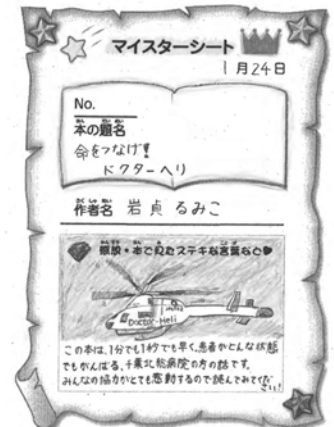 マイスターシート
1月24日
No.
本の題名
命をつなげ!
ドクターヘリ
作者名 岩貞 るみこ
感想・本で見たステキな言葉など♥
Doctor-Heli
この本は、1分でも1秒でも早く、患者がどんな状態
でもがんばる、千葉北総病院の方の話です。
みんなの協力がとても感動するので読んでみてくだ
さい!